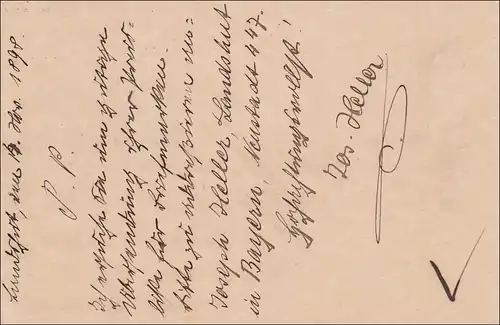 Landshut, den 12. Nov. 1898.
P. P.
Ich ersuche Sie um gütige
Übersendung Ihrer Preis-
liste für Briefmarken.
bitte zu adressieren an:
Joseph Heller, Landshut
in Bayern, Neustadt 447.
Hochachtungsvollst!
Jos. Heller